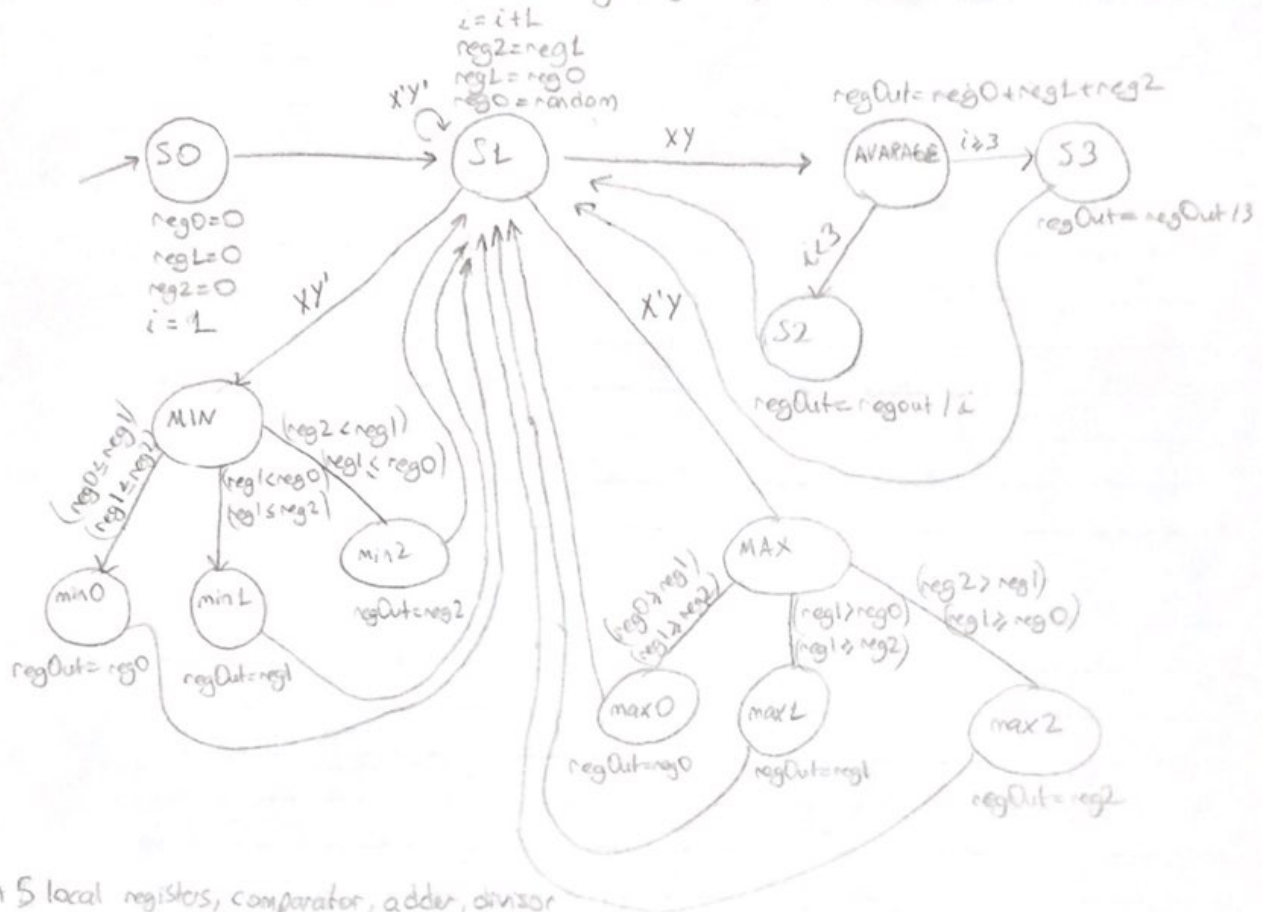 i = i+1
reg2 = reg1
reg1 = reg0
reg0 = random
X'Y'
S0
S1
XY
regOut = reg0 + reg1 + reg2
AVARAGE
i≥3
S3
regOut = regOut / 3
reg0 = 0
reg1 = 0
reg2 = 0
i = 1
i<3
S2
regOut = regout / i
XY'
X'Y
MIN
(reg0 ≤ reg1)
(reg1 ≤ reg2)
(reg1 < reg0)
(reg1 ≤ reg2)
(reg2 < reg1)
(reg1 ≤ reg0)
min0
regOut = reg0
min1
regOut = reg1
min2
regOut = reg2
MAX
(reg0 ≥ reg1)
(reg1 ≥ reg2)
(reg1 > reg0)
(reg1 ≥ reg2)
(reg2 > reg1)
(reg1 ≥ reg0)
max0
regOut = reg0
max1
regOut = reg1
max2
regOut = reg2
5 local registers, comparator, adder, divisor